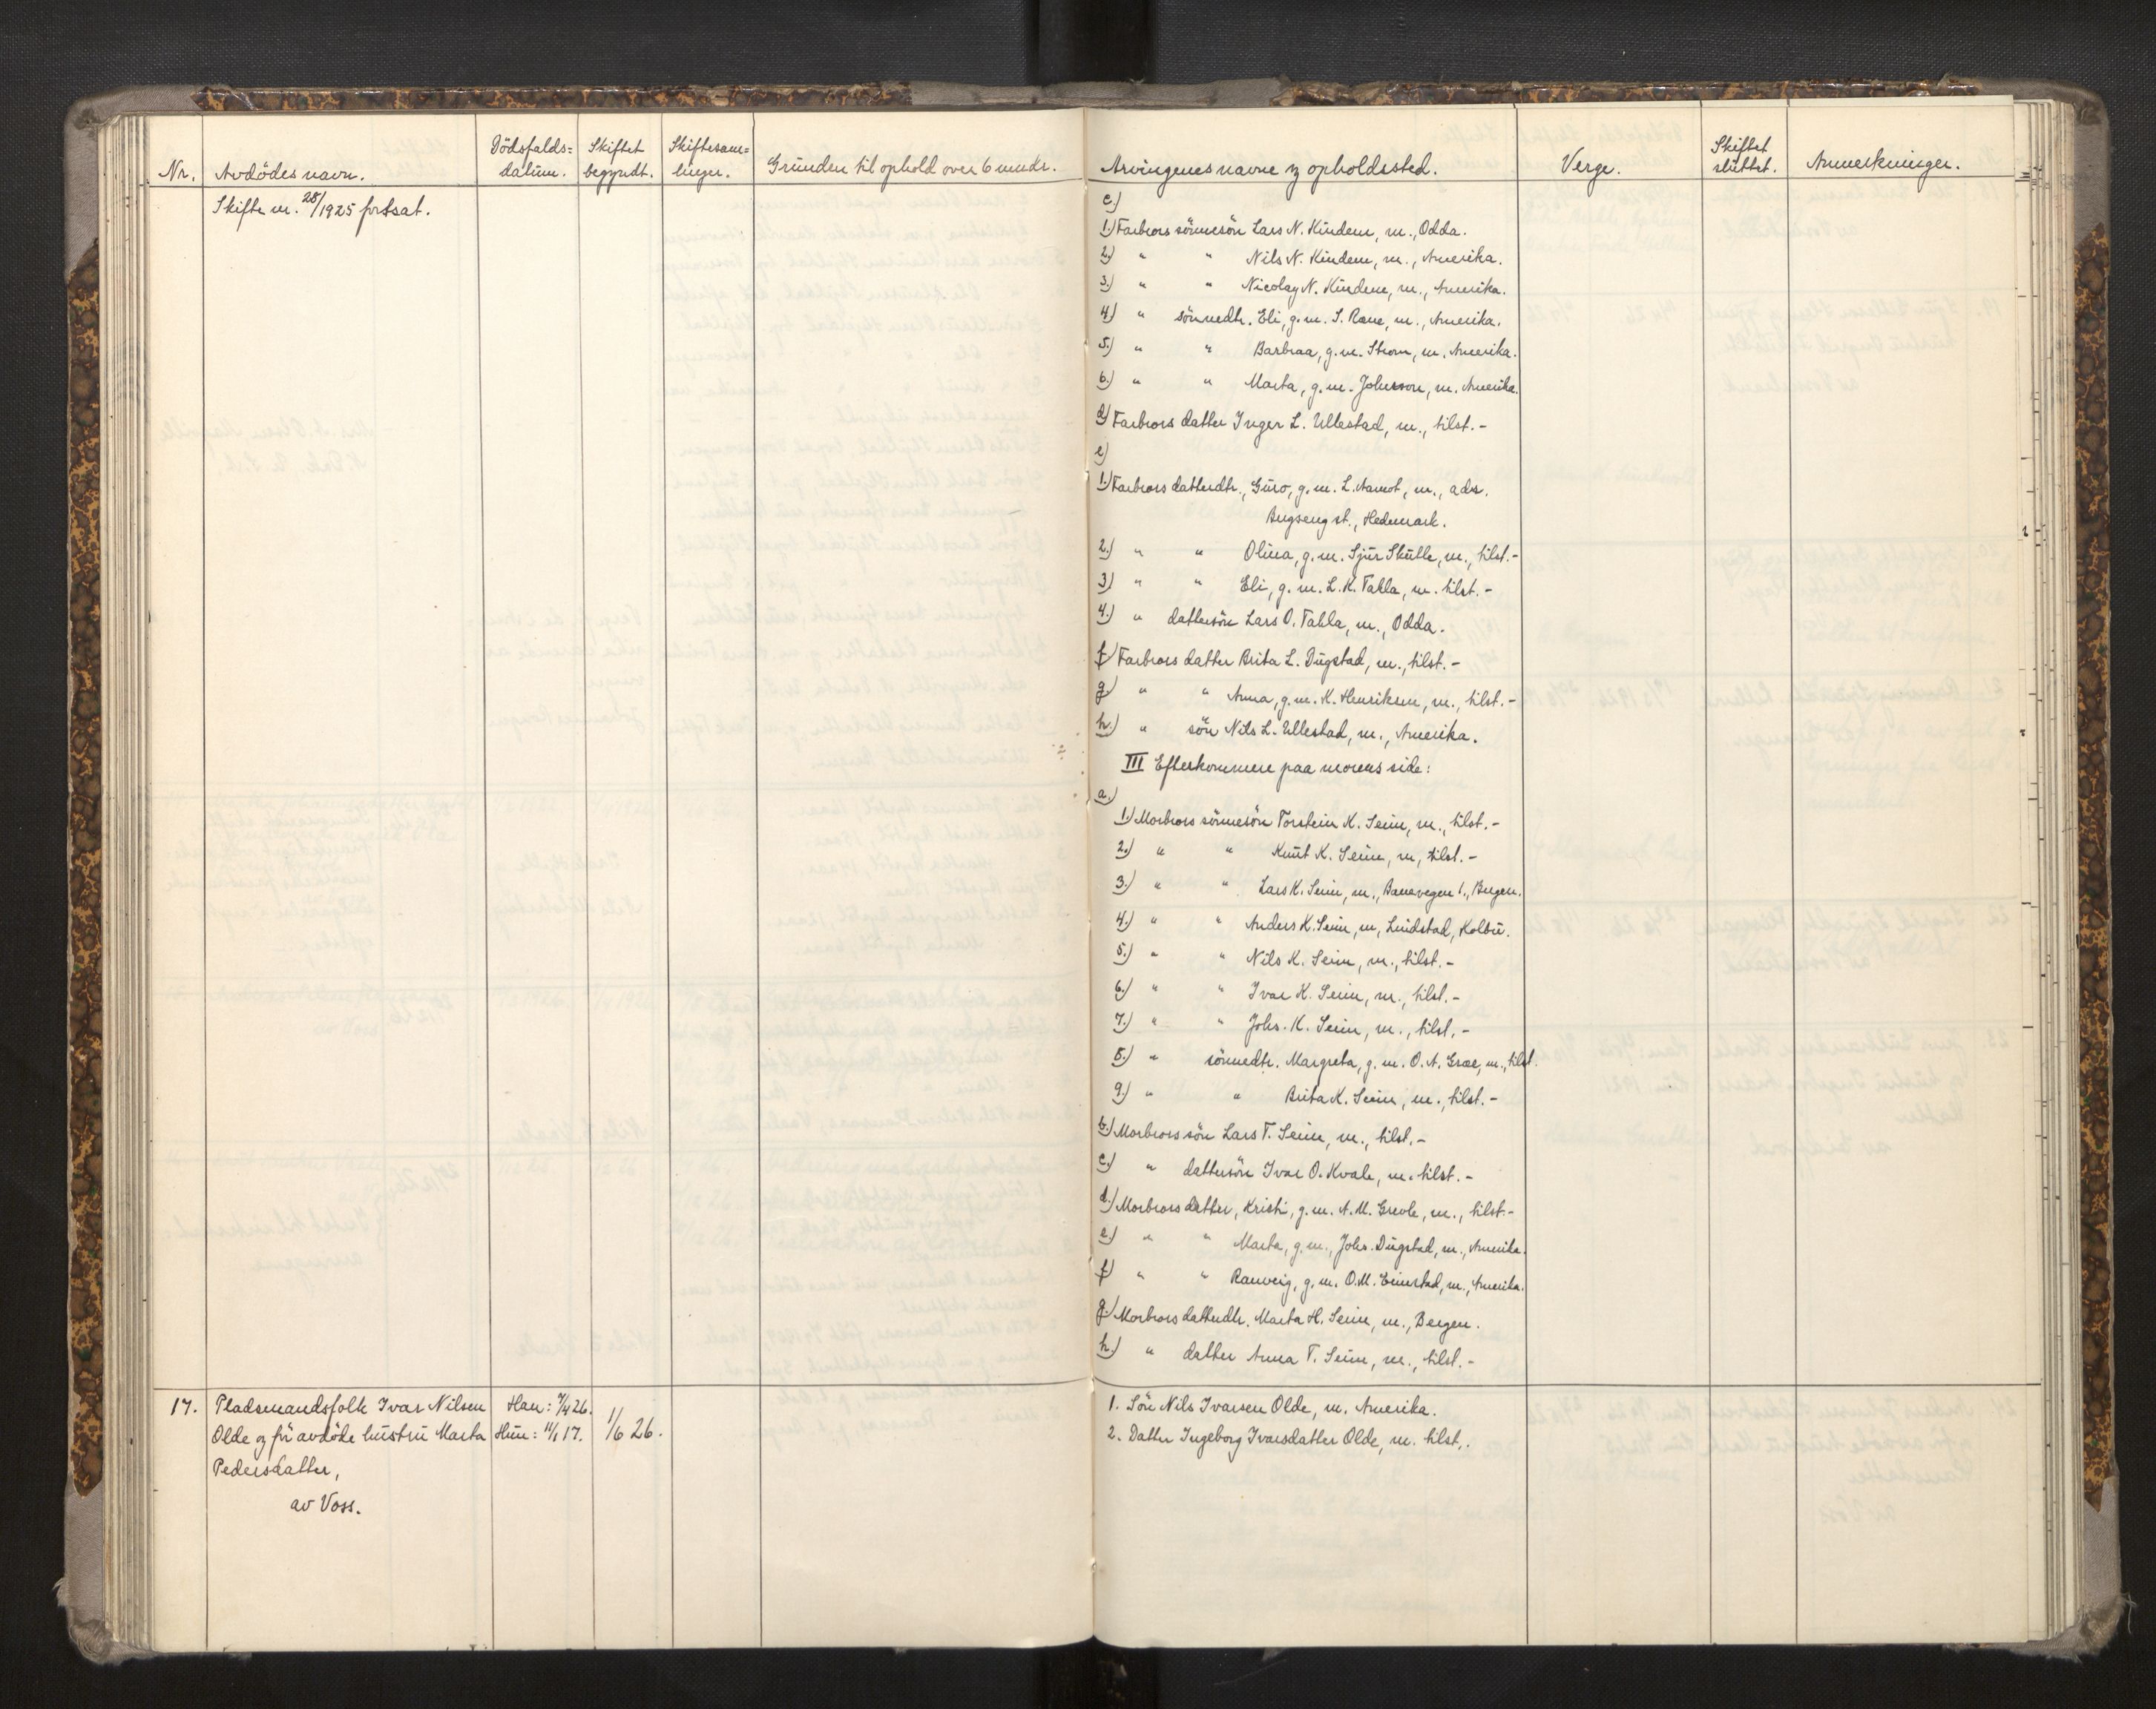 Nr. Avdödes navn. Dödsfalds= datum. Skiftet begyndt. Skiftesam= linger. Grunden til ophold over 6 mndr.
Skifte nr. 28/1925 fortsat.
17. Pladsmandsfolk Ivar Nilsen Han: 7/4 26. 1/6 26.
Olde og før avdöde hustru Marta Hun: 11/1 17.
Pedersdatter,
av Voss.
Arvingenes navne og opholdssted. Verge. Skiftet sluttet. Anmerkninger.
c)
1.) Farbrors sönnesön Lars N. Kindem, m., Odda.
2.) " " Nils N. Kindem, m., Amerika.
3.) " " Nicolay N. Kindem, m., Amerika.
4.) " sönnedtr. Eli, g.m. S. Rene, m., Amerika.
5.) " " Barbraa, g.m. Strom, m. Amerika.
6.) " " Marta, g.m. Johnson, m. Amerika.
d) Farbrors datter Inger L. Ullestad, m., tilst.-
e)
1.) Farbrors datterdtr., Guro, g.m. L. Aamot, m., adr.
st., Hedmark.
2.) " " Olina, g.m. Sjur Skutle, m., tilst.-
3.) " " Eli, g.m. L.K. Takla, m. tilst.-
4.) " dattersön Lars O. Takla, m., Odda.
f) Farbrors datter Brita L. Dugstad, m., tilst.-
g.) " " Anna, g.m. K. Henriksen, m., tilst.-
h.) " sön Nils L. Ullestad, m., Amerika.
III Efterkommere paa morens side:
a.)
1.) Morbrors sönnesön Torstein K. Seim, m., tilst.-
2.) " " Knut K. Seim, m, tilst.-
3.) " " Lars K. Seim, m., Banevegen 1., Bergen.
4.) " " Anders K. Seim, m, Lindstad, Kolbu.
5.) " " Nils K. Seim, m., tilst.-
6.) " " Ivar K. Seim, m., tilst.-
7.) " " Johs. K. Seim, m., tilst.-
8.) " sönnedtr. Margreta, g.m. O.A. Græe, m., tilst.
9.) " " Brita K. Seim, m., tilst.-
b.) Morbrors sön Lars T. Seim, m., tilst.-
c.) " dattersön Ivar O. Kvale, m. tilst.-
d.) Morbrors datter, Kristi, g.m. A.M. Grevle, m., tilst.-
e.) " " Marta, g.m., Johs. Dugstad, m., Amerika.
f.) " " Ranveig, g.m. O.M. Eimstad, m., Amerika.
g.) Morbrors datterdtr. Marta H. Seim, m., Bergen.
h.) " datter Anna T. Seim, m., tilst.-
1. Sön Nils Ivarsen Olde, m. Amerika.
2. Datter Ingeborg Ivarsdatter Olde, m. tilst..